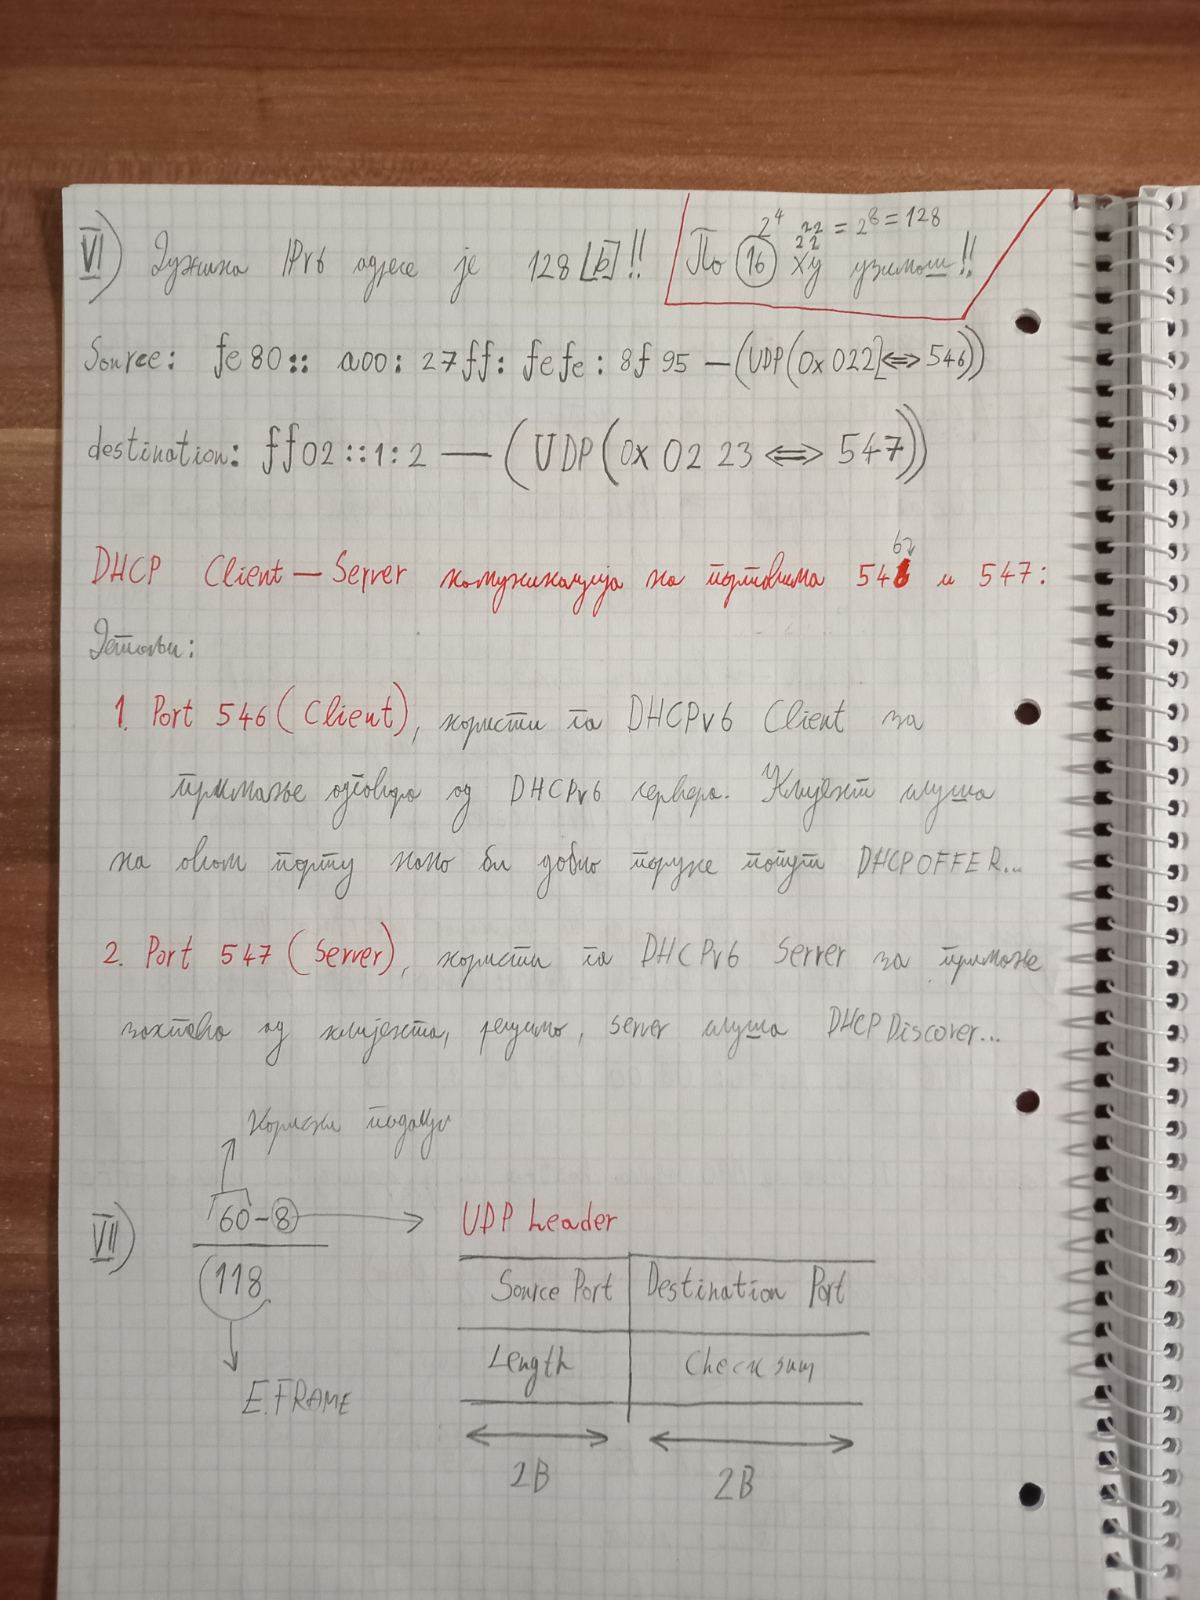 VI) Дужина IPv6 адресе је 128 [b]!!
2⁴ 22 = 2⁸ = 128
22
По 16 xy узимаш!!
Source: fe80:: a00: 27ff: fefe: 8f95 — (UDP(0x 022] ⇔ 546))
destination: ff02::1:2 — (UDP(0x 02 23 ⇔ 547))
DHCP Client — Server комуникација на портовима 546 и 547:
1. Port 546 (Client), користи га DHCPv6 Client за
примање одговора од DHCPv6 сервера. Клијент слуша
на овом порту како би добио поруке попут DHCPOFFER...
2. Port 547 (Server), користи га DHCPv6 Server за примање
захтева од клијента, рецимо, server слуша DHCP Discover...
Корисни подаци
VII) 60-8 → UDP Leader
118
Source Port Destination Port
Length Checksum
E.FRAME
2B 2B